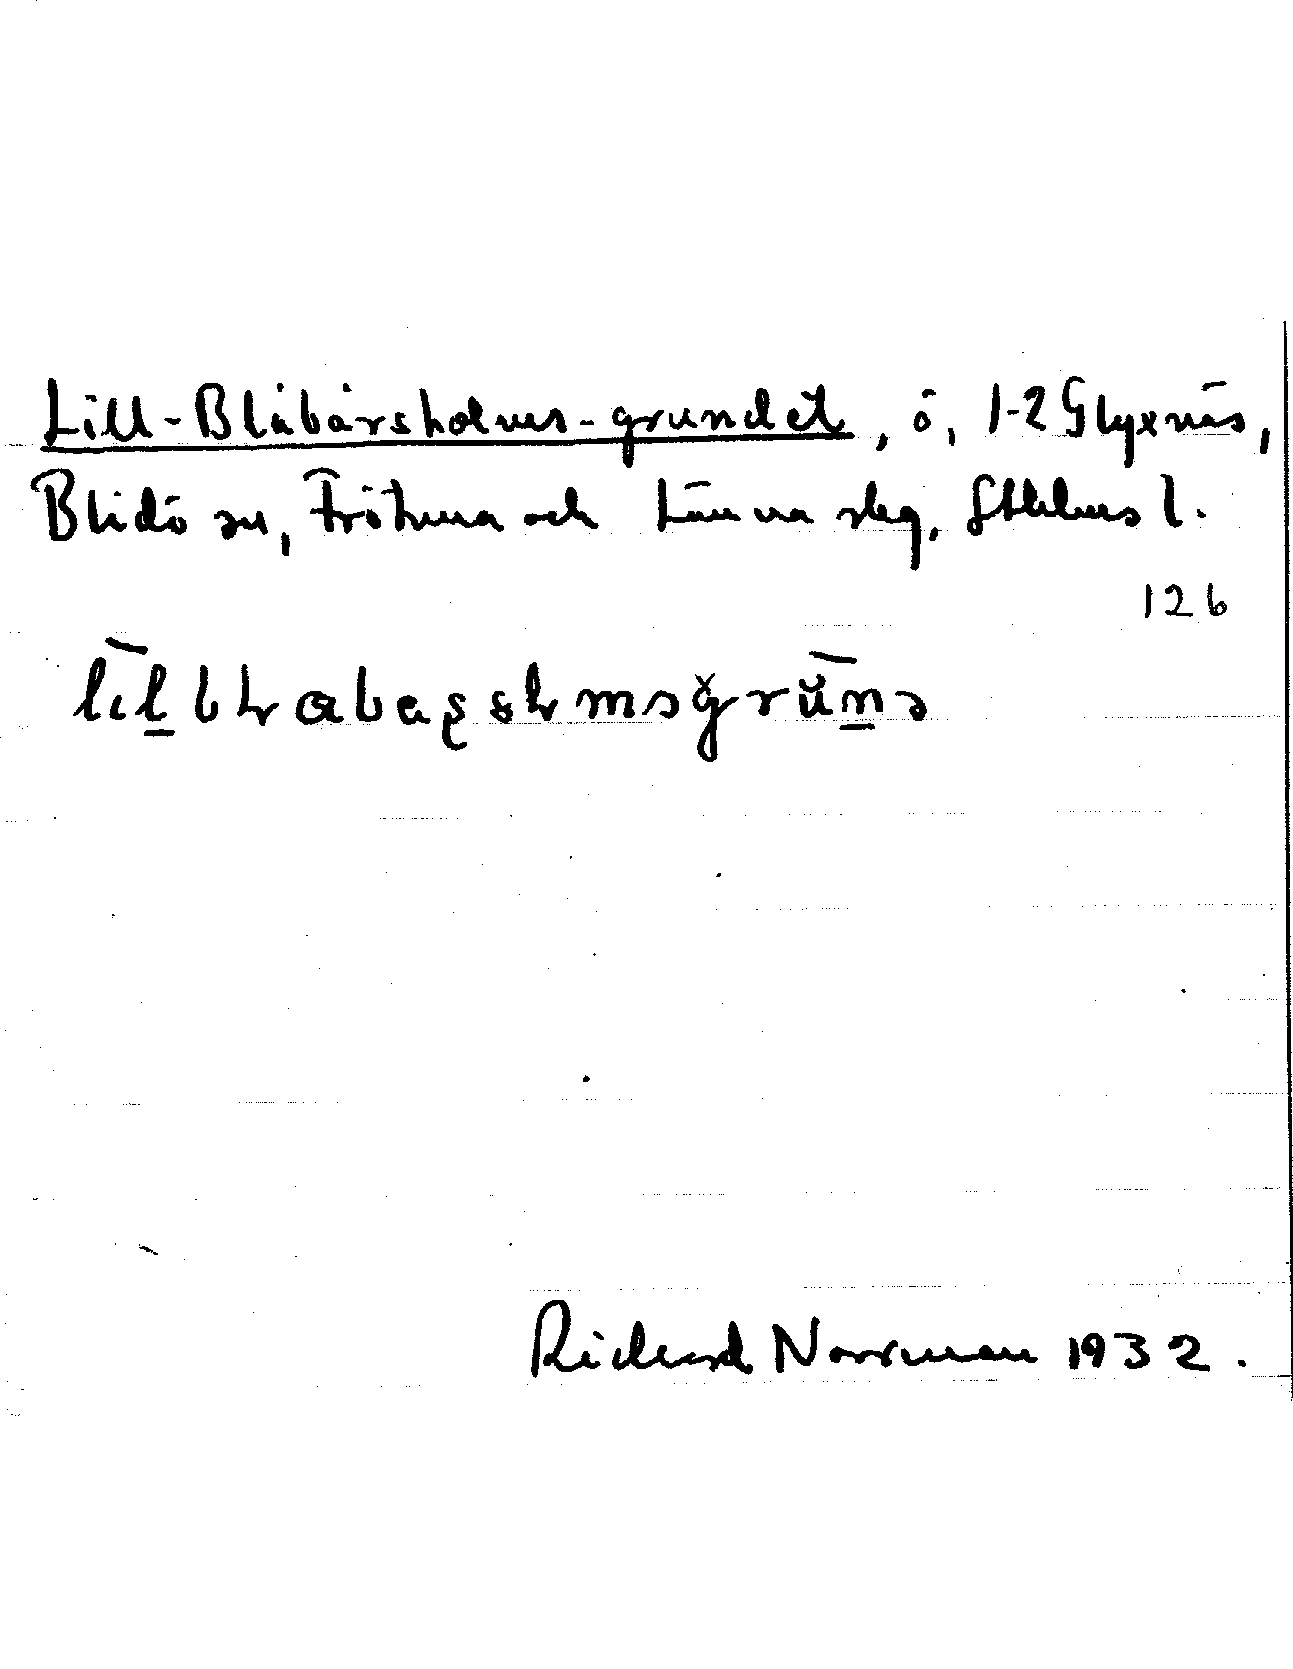 Lill-Blåbärsholms-grundet, ö, 1-2 Glyxnäs,
Blidö sn, Frötuna och Länna slg, Sthlms l.
126
Rickard Norrman 1932.